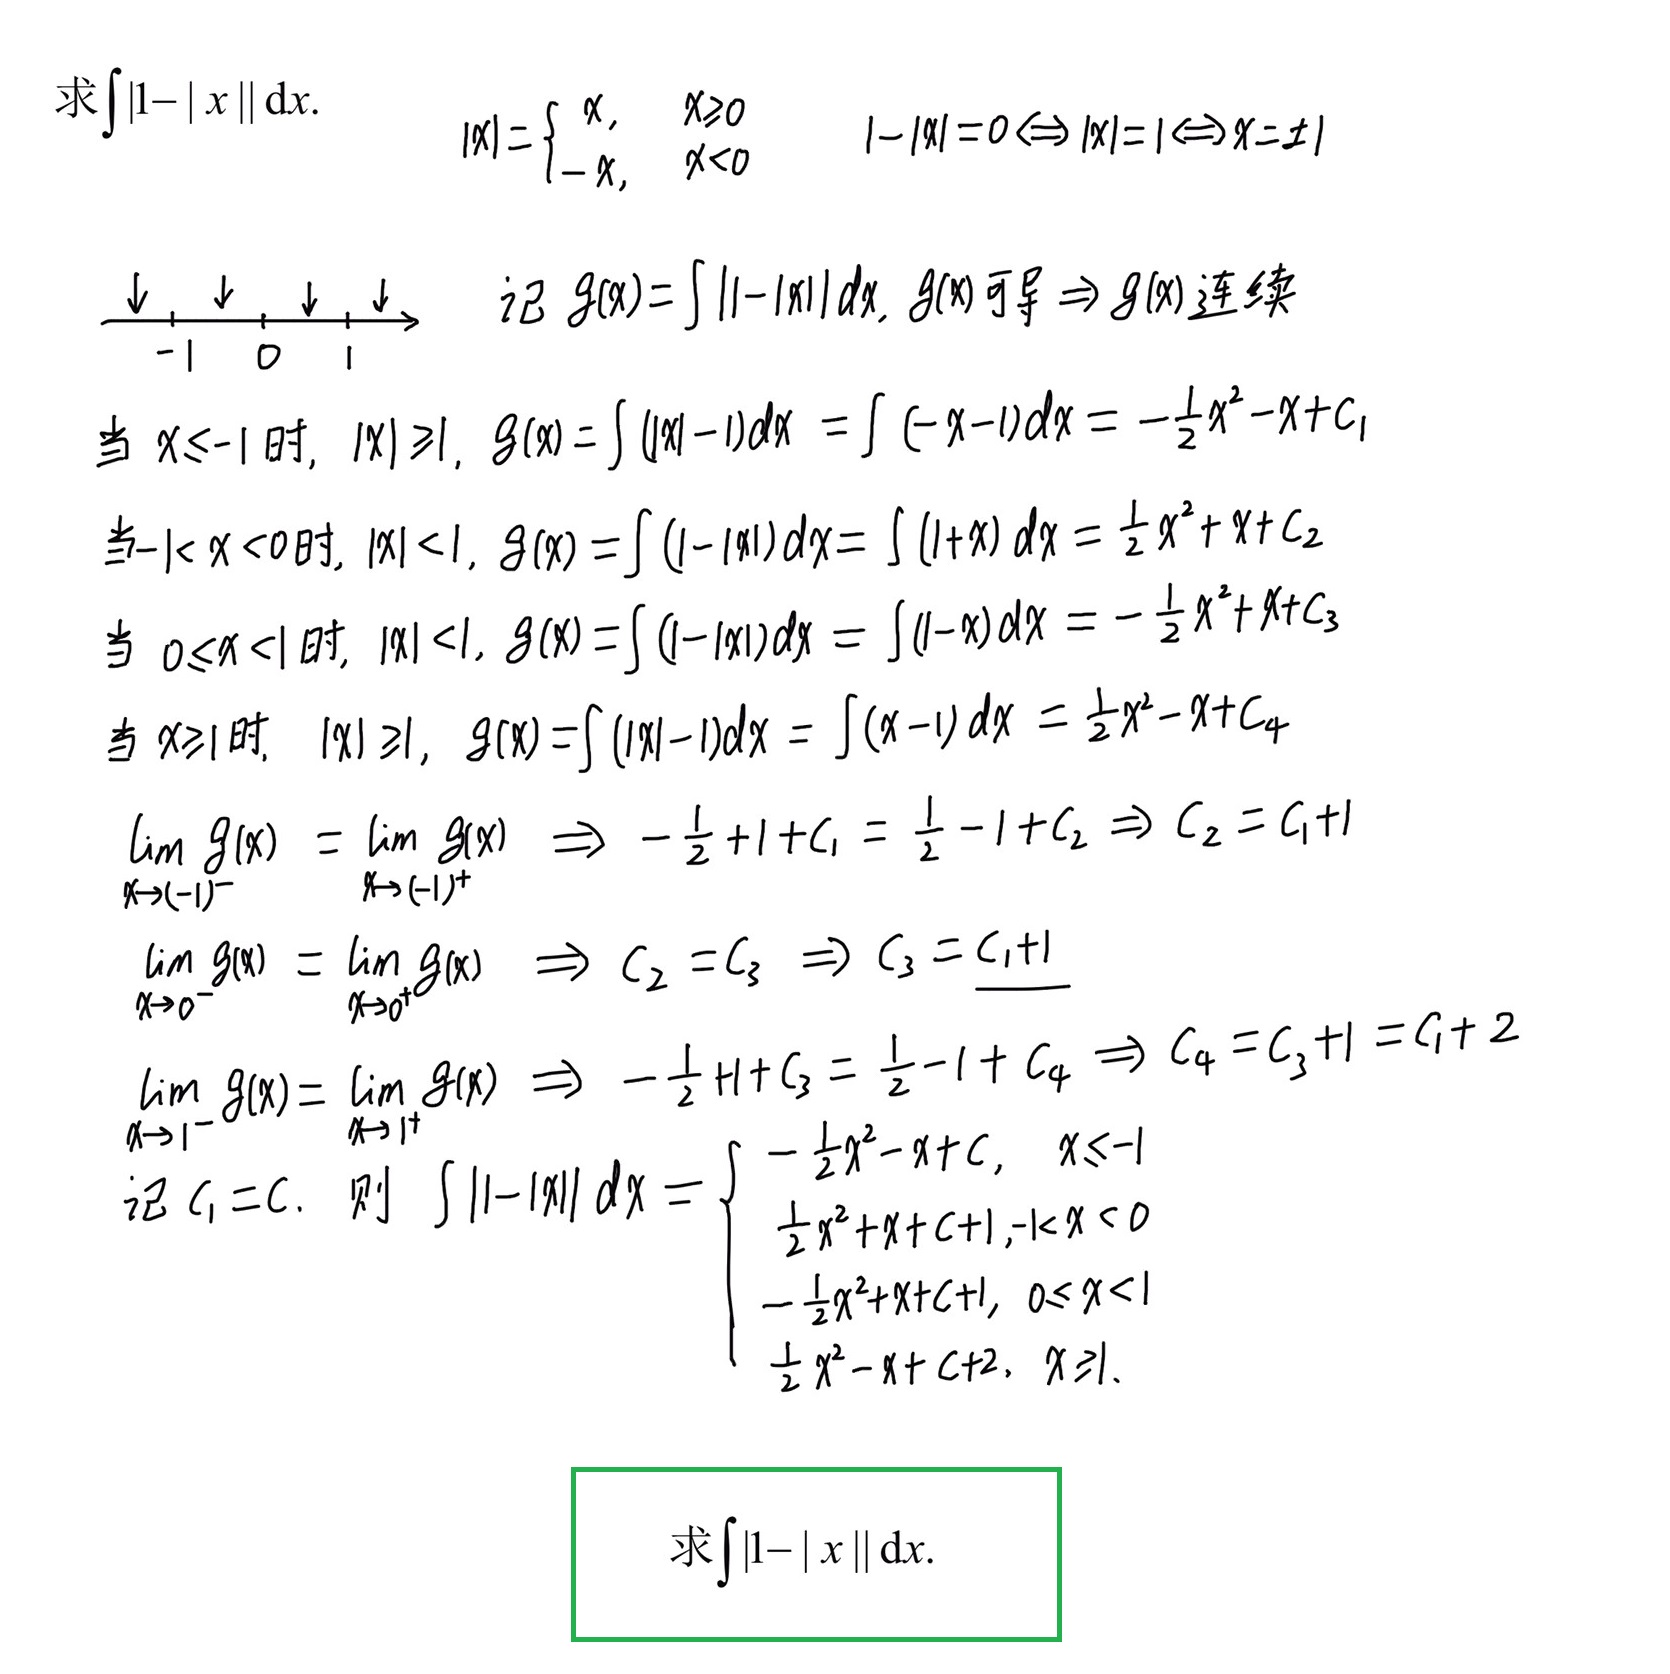 求∫|1-|x||dx.
|x|={x, x≥0
-x, x<0
1-|x|=0⇔|x|=1⇔x=±1
-1 0 1
记 g(x)=∫|1-|x||dx, g(x)可导⇒g(x)连续
当 x≤-1时, |x|≥1, g(x)=∫(|x|-1)dx=∫(-x-1)dx=-1/2x²-x+C₁
当-1<x<0时, |x|<1, g(x)=∫(1-|x|)dx=∫(1+x)dx=1/2x²+x+C₂
当 0≤x<1时, |x|<1, g(x)=∫(1-|x|)dx=∫(1-x)dx=-1/2x²+x+C₃
当 x≥1时. |x|≥1, g(x)=∫(|x|-1)dx=∫(x-1)dx=1/2x²-x+C₄
lim x→(-1)⁻ g(x)=lim x→(-1)⁺ g(x)⇒-1/2+1+C₁=1/2-1+C₂⇒C₂=C₁+1
lim x→0⁻ g(x)=lim x→0⁺ g(x)⇒C₂=C₃⇒C₃=C₁+1
lim x→1⁻ g(x)=lim x→1⁺ g(x)⇒-1/2+1+C₃=1/2-1+C₄⇒C₄=C₃+1=C₁+2
记 C₁=C. 则 ∫|1-|x||dx={-1/2x²-x+C, x≤-1
1/2x²+x+C+1, -1<x<0
-1/2x²+x+C+1, 0≤x<1
1/2x²-x+C+2, x≥1.
求∫|1-|x||dx.